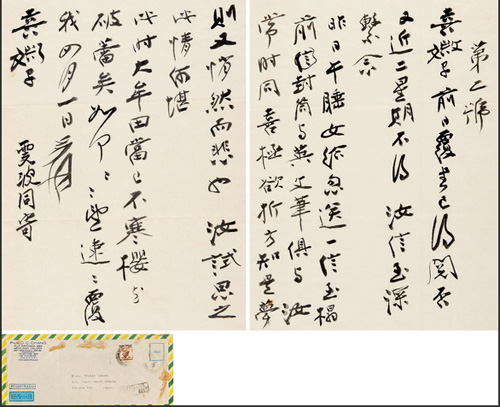 第二號
喜嬍子 前日覆書已得閱否
又近二星期不得 汝信至深
繫念
昨日午睡女給忽送一信至榻
前信封筒与英文筆俱与 汝
常時同 喜極欲拆方知是夢
則又悄然而悲也 汝試思之
此情何堪
此時大牟田當已不寒櫻亦
破蕾矣 如何〻〻望速〻覆
我 四月一日 爰
喜嬍子 雯波同寄
C. CHANG